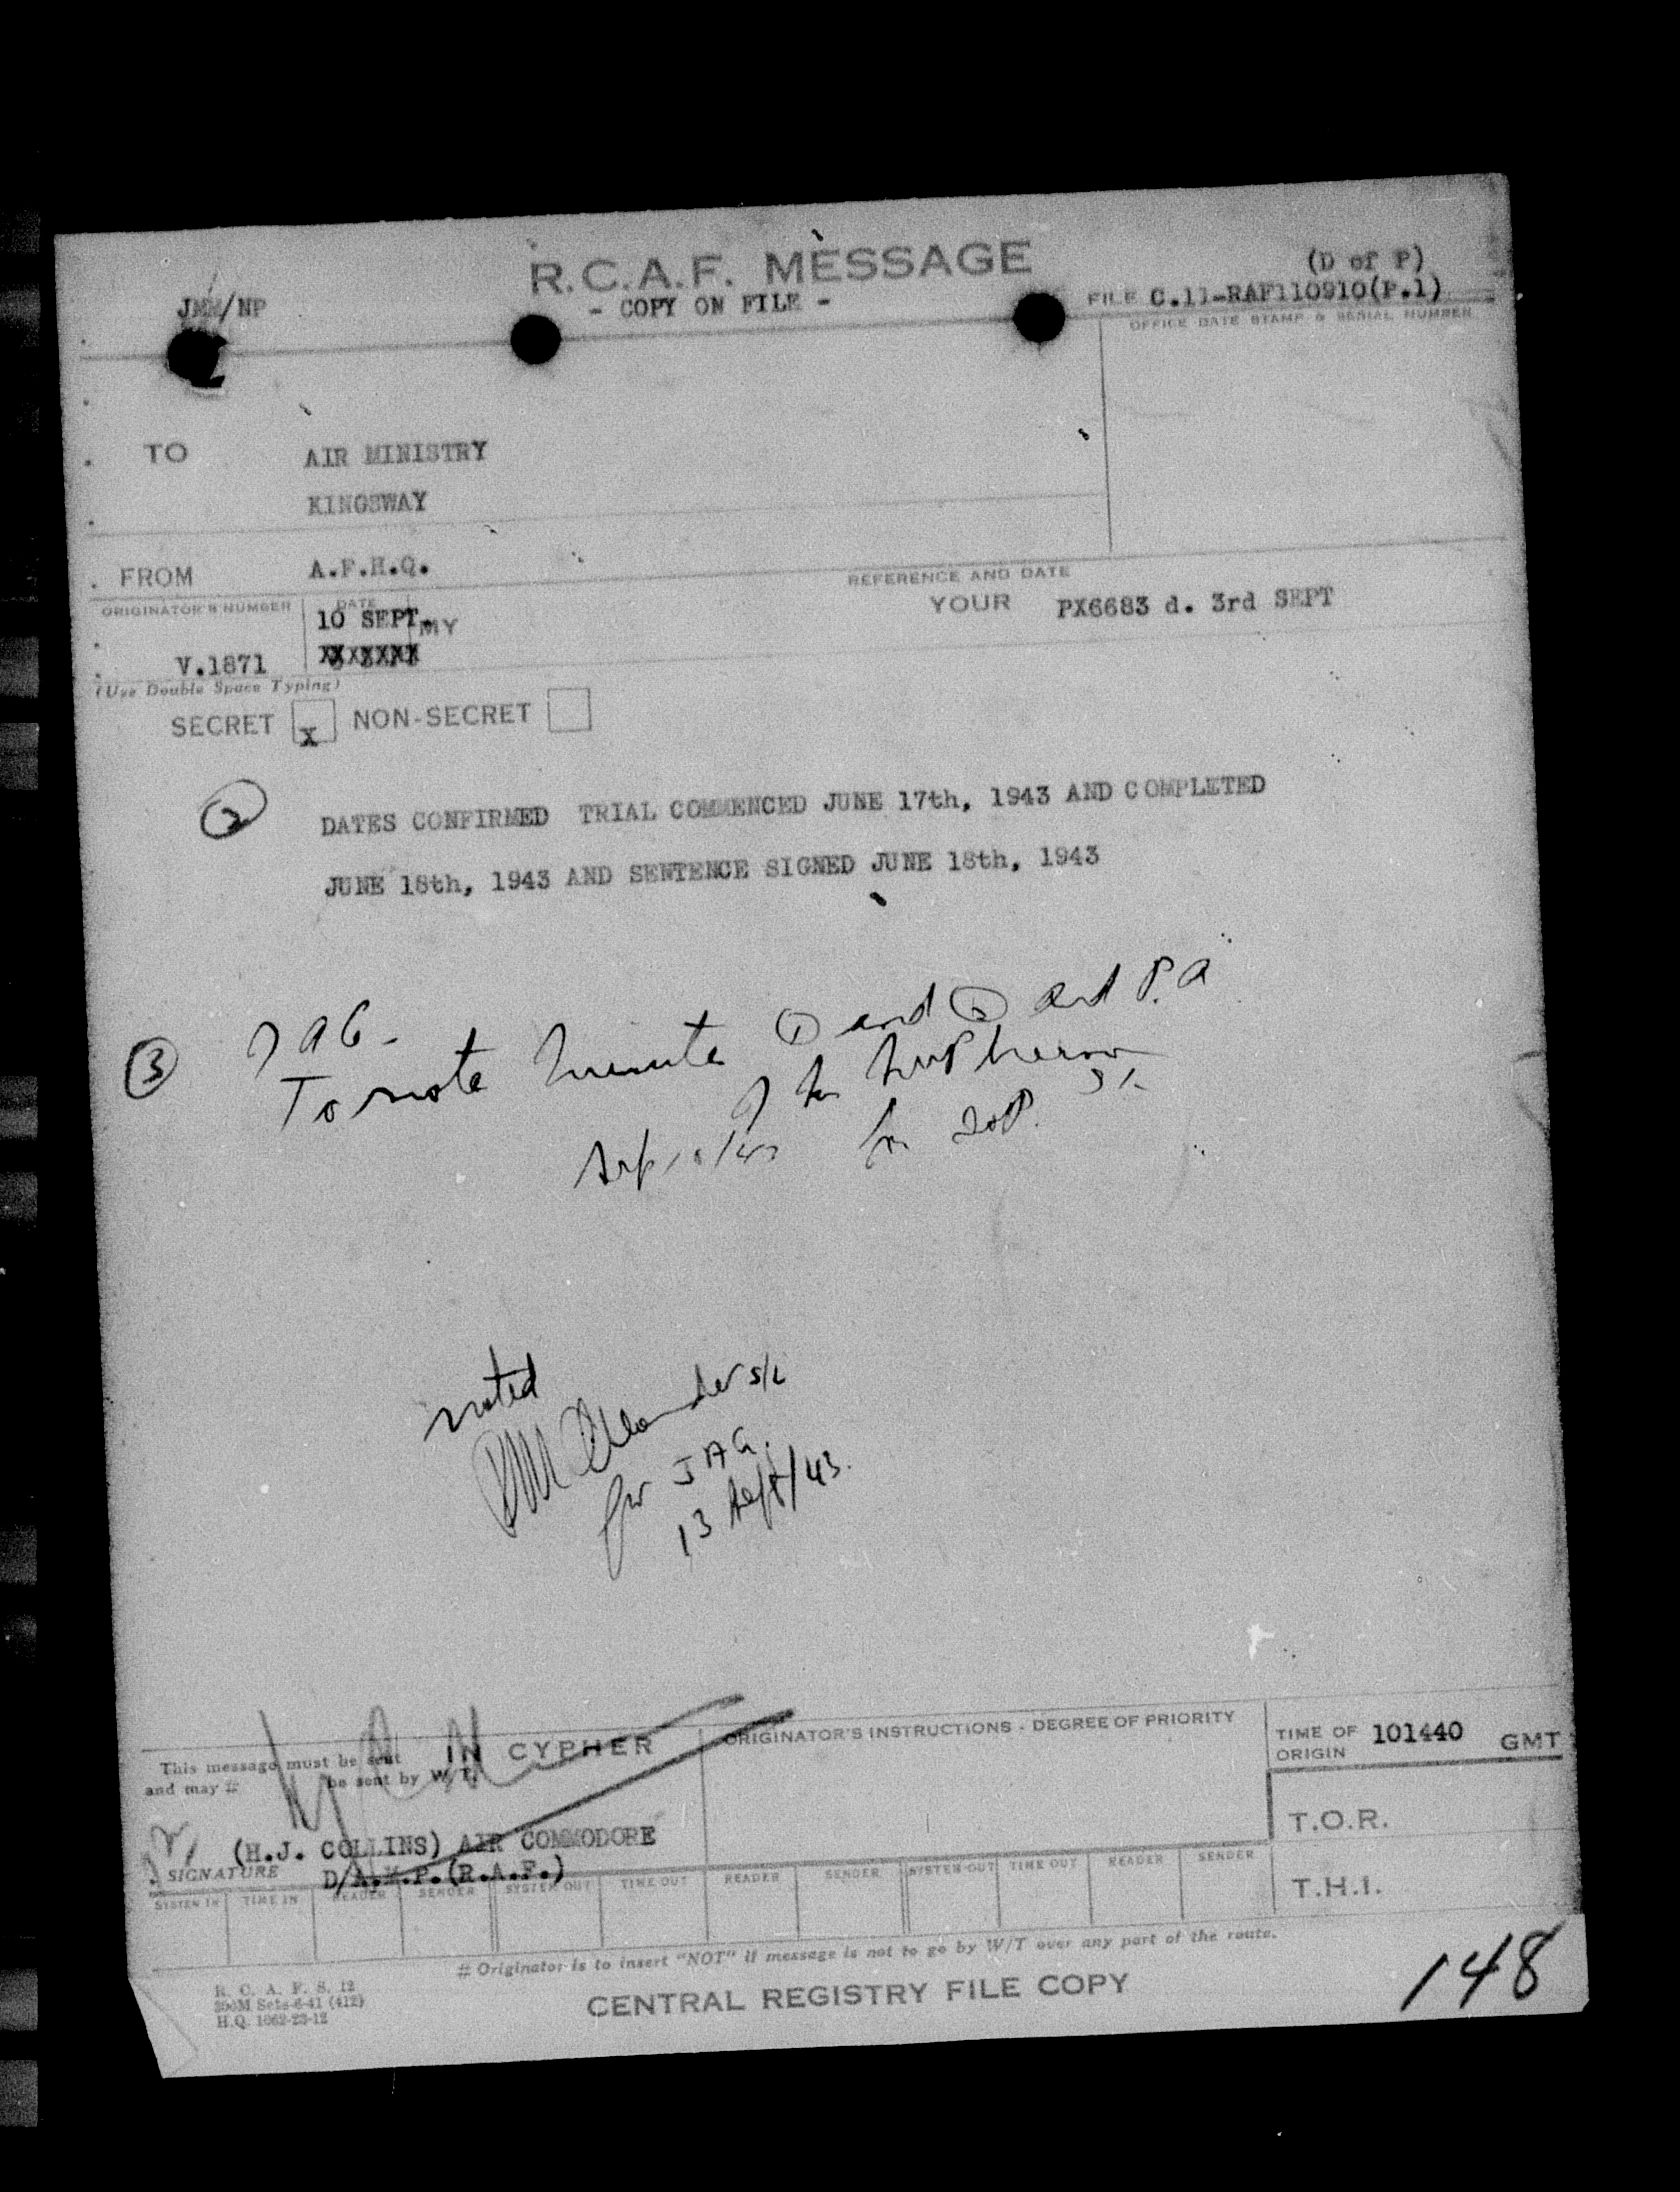 R.C.A.F. MESSAGE
(D of P)
JMM/NP
- COPY ON FILE -
FILE C.11-RAF110910(P.1)
OFFICE DATE STAMP & SERIAL NUMBER
TO AIR MINISTRY
KINGSWAY
FROM A.F.H.Q.
REFERENCE AND DATE
ORIGINATOR'S NUMBER DATE
10 SEPT. MY
YOUR PX6683 d. 3rd SEPT
V.1871 XXXXXXX
(Use Double Space Typing)
SECRET X NON-SECRET
2 DATES CONFIRMED TRIAL COMMENCED JUNE 17th, 1943 AND COMPLETED
JUNE 18th, 1943 AND SENTENCE SIGNED JUNE 18th, 1943
3 JAG-
To note minute 1 and 2 and P.A
for DofP.
noted
S/L
for JAG.
13 Sept/43.
ORIGINATOR'S INSTRUCTIONS - DEGREE OF PRIORITY
TIME OF ORIGIN 101440 GMT
This message must be sent IN CYPHER
and may # be sent by W/T.
T.O.R.
(H.J. COLLINS) AIR COMMODORE
SIGNATURE D/A.M.P.(R.A.F.)
T.H.I.
SYSTEM IN TIME IN READER SENDER SYSTEM OUT TIME OUT READER SENDER SYSTEM OUT TIME OUT READER SENDER
# Originator is to insert "NOT" if message is not to go by W/T over any part of the route.
R. C. A. F. S. 12
350M Sets-6-41 (412)
H.Q. 1062-23-12
CENTRAL REGISTRY FILE COPY
148